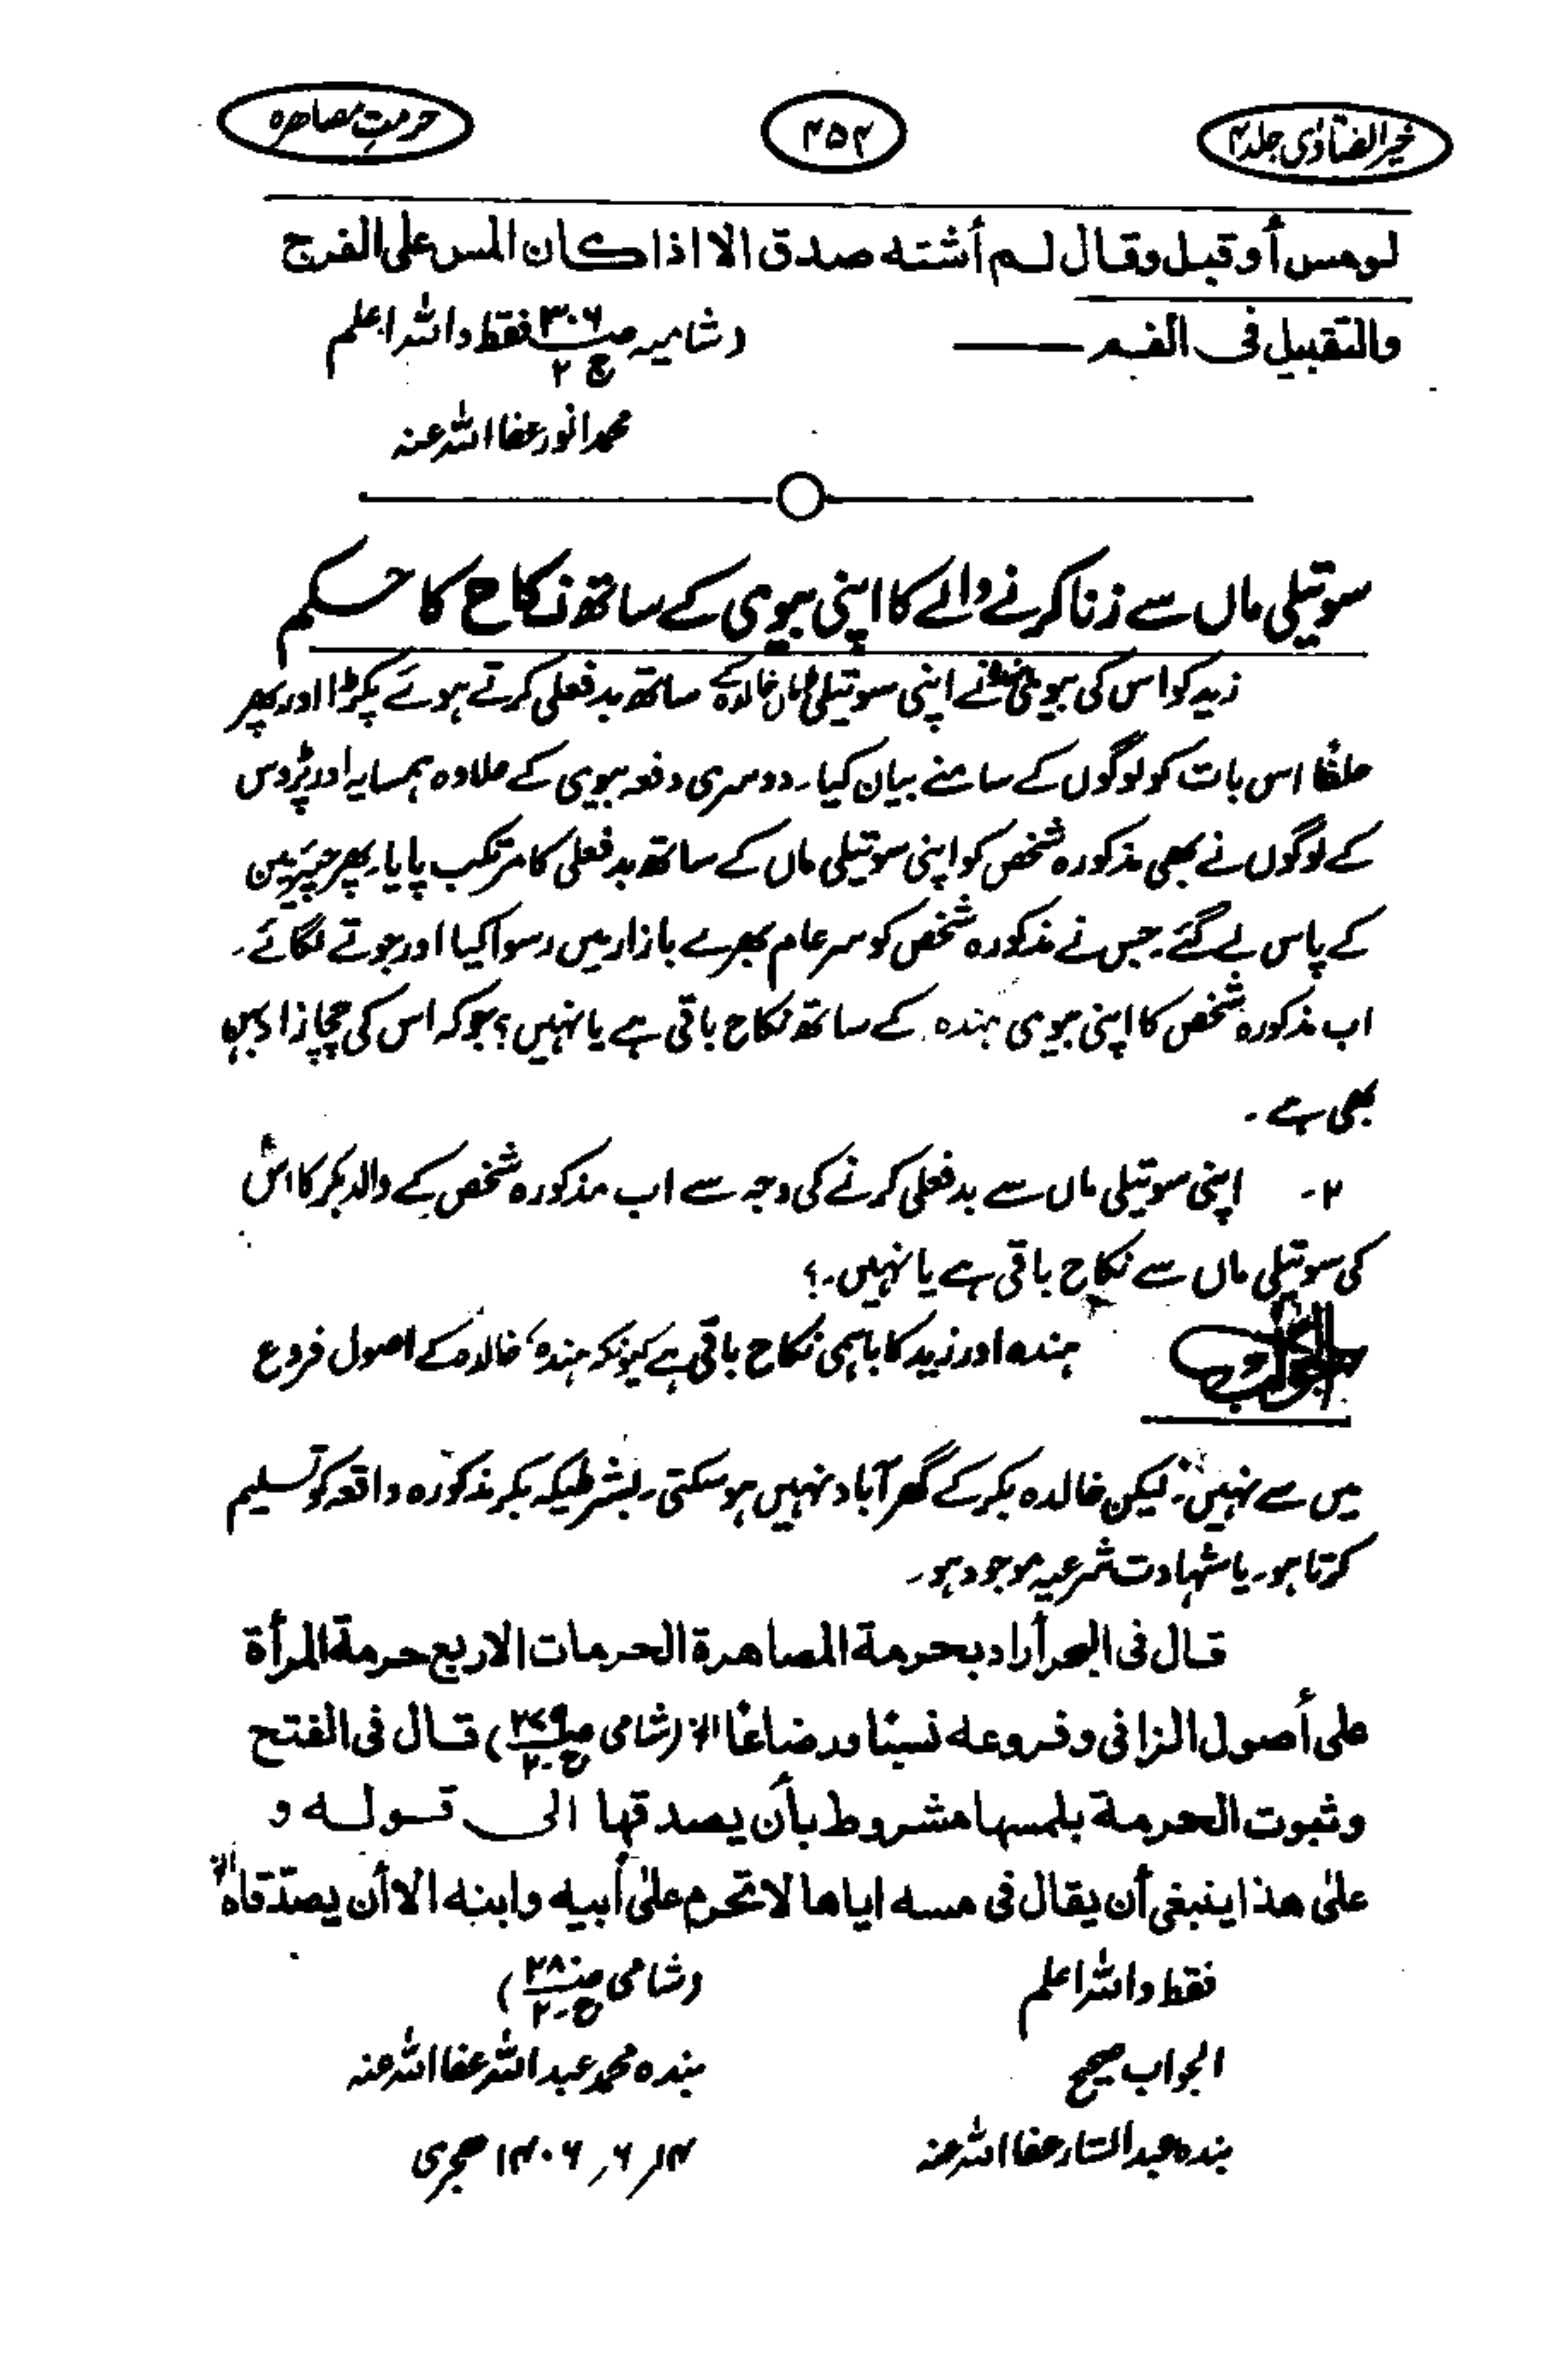 خیر الفتاوٰی جلد ۴
۴۵۴
حرمتِ مصاہرہ
لو مس أو قبل وقال لم أشته صدق الا اذا كان المس على الفرج
والتقبيل فى الفم —— (شامیہ ص ۳۰۶ ج ۲ فقط واللہ اعلم
محمد انور عفا اللہ عنہ
سوتیلی ماں سے زنا کرنے والے کا اپنی بیوی کے ساتھ نکاح کا حکم
زید کو اس کی بیوی ہندہ نے اپنی سوتیلی ماں خالدہ کے ساتھ بدفعلی کرتے ہوئے پکڑا اور پھر
حلفًا اس بات کو لوگوں کے سامنے بیان کیا۔ دوسری دفعہ بیوی کے علاوہ ہمسایہ اور پڑوس
کے لوگوں نے بھی مذکورہ شخص کو اپنی سوتیلی ماں کے ساتھ بدفعلی کا مرتکب پایا۔ پھر چیئرمین
کے پاس لے گئے۔ جس نے مذکورہ شخص کو سرعام بھرے بازار میں رسوا کیا اور جوتے لگائے۔
اب مذکورہ شخص کا اپنی بیوی ہندہ کے ساتھ نکاح باقی ہے یا نہیں؟ جو کہ اس کی چچا زاد بہن
بھی ہے۔
۲۔ اپنی سوتیلی ماں سے بدفعلی کرنے کی وجہ سے اب مذکورہ شخص کے والد بکر کا اس
کی سوتیلی ماں سے نکاح باقی ہے یا نہیں۔؟
الجواب ہندہ اور زید کا باہمی نکاح باقی ہے کیونکہ ہندہ، خالدہ کے اصول فروع
میں سے نہیں۔ لیکن خالدہ بکر کے گھر آباد نہیں ہو سکتی۔ بشرطیکہ بکر مذکورہ واقعہ کو تسلیم
کرتا ہو۔ یا شہادت شرعیہ موجود ہو۔
قال فى البحر أراد بحرمة المصاهرة الحرمات الاربع حرمة المرأة
على أصول الزانى وفروعه نسبًا ورضاعًا اﻫ (شامی ص ۲۷۹ ج ۲) قال فى الفتح
وثبوت الحرمة بلمسها مشروط بأن يصدقها الى قوله و
علىٰ هذا ينبغى أن يقال فى مسه اياها لا تحرم علىٰ أبيه وابنه الا أن يصدّقاه اﻫ
فقط واللہ اعلم (شامی ص ۲۸۰ ج ۲)
الجواب صحیح بندہ محمد عبداللہ عفا اللہ عنہ
بندہ عبدالستار عفا اللہ عنہ ۱۴؍۶؍۱۴۰۶ ہجری